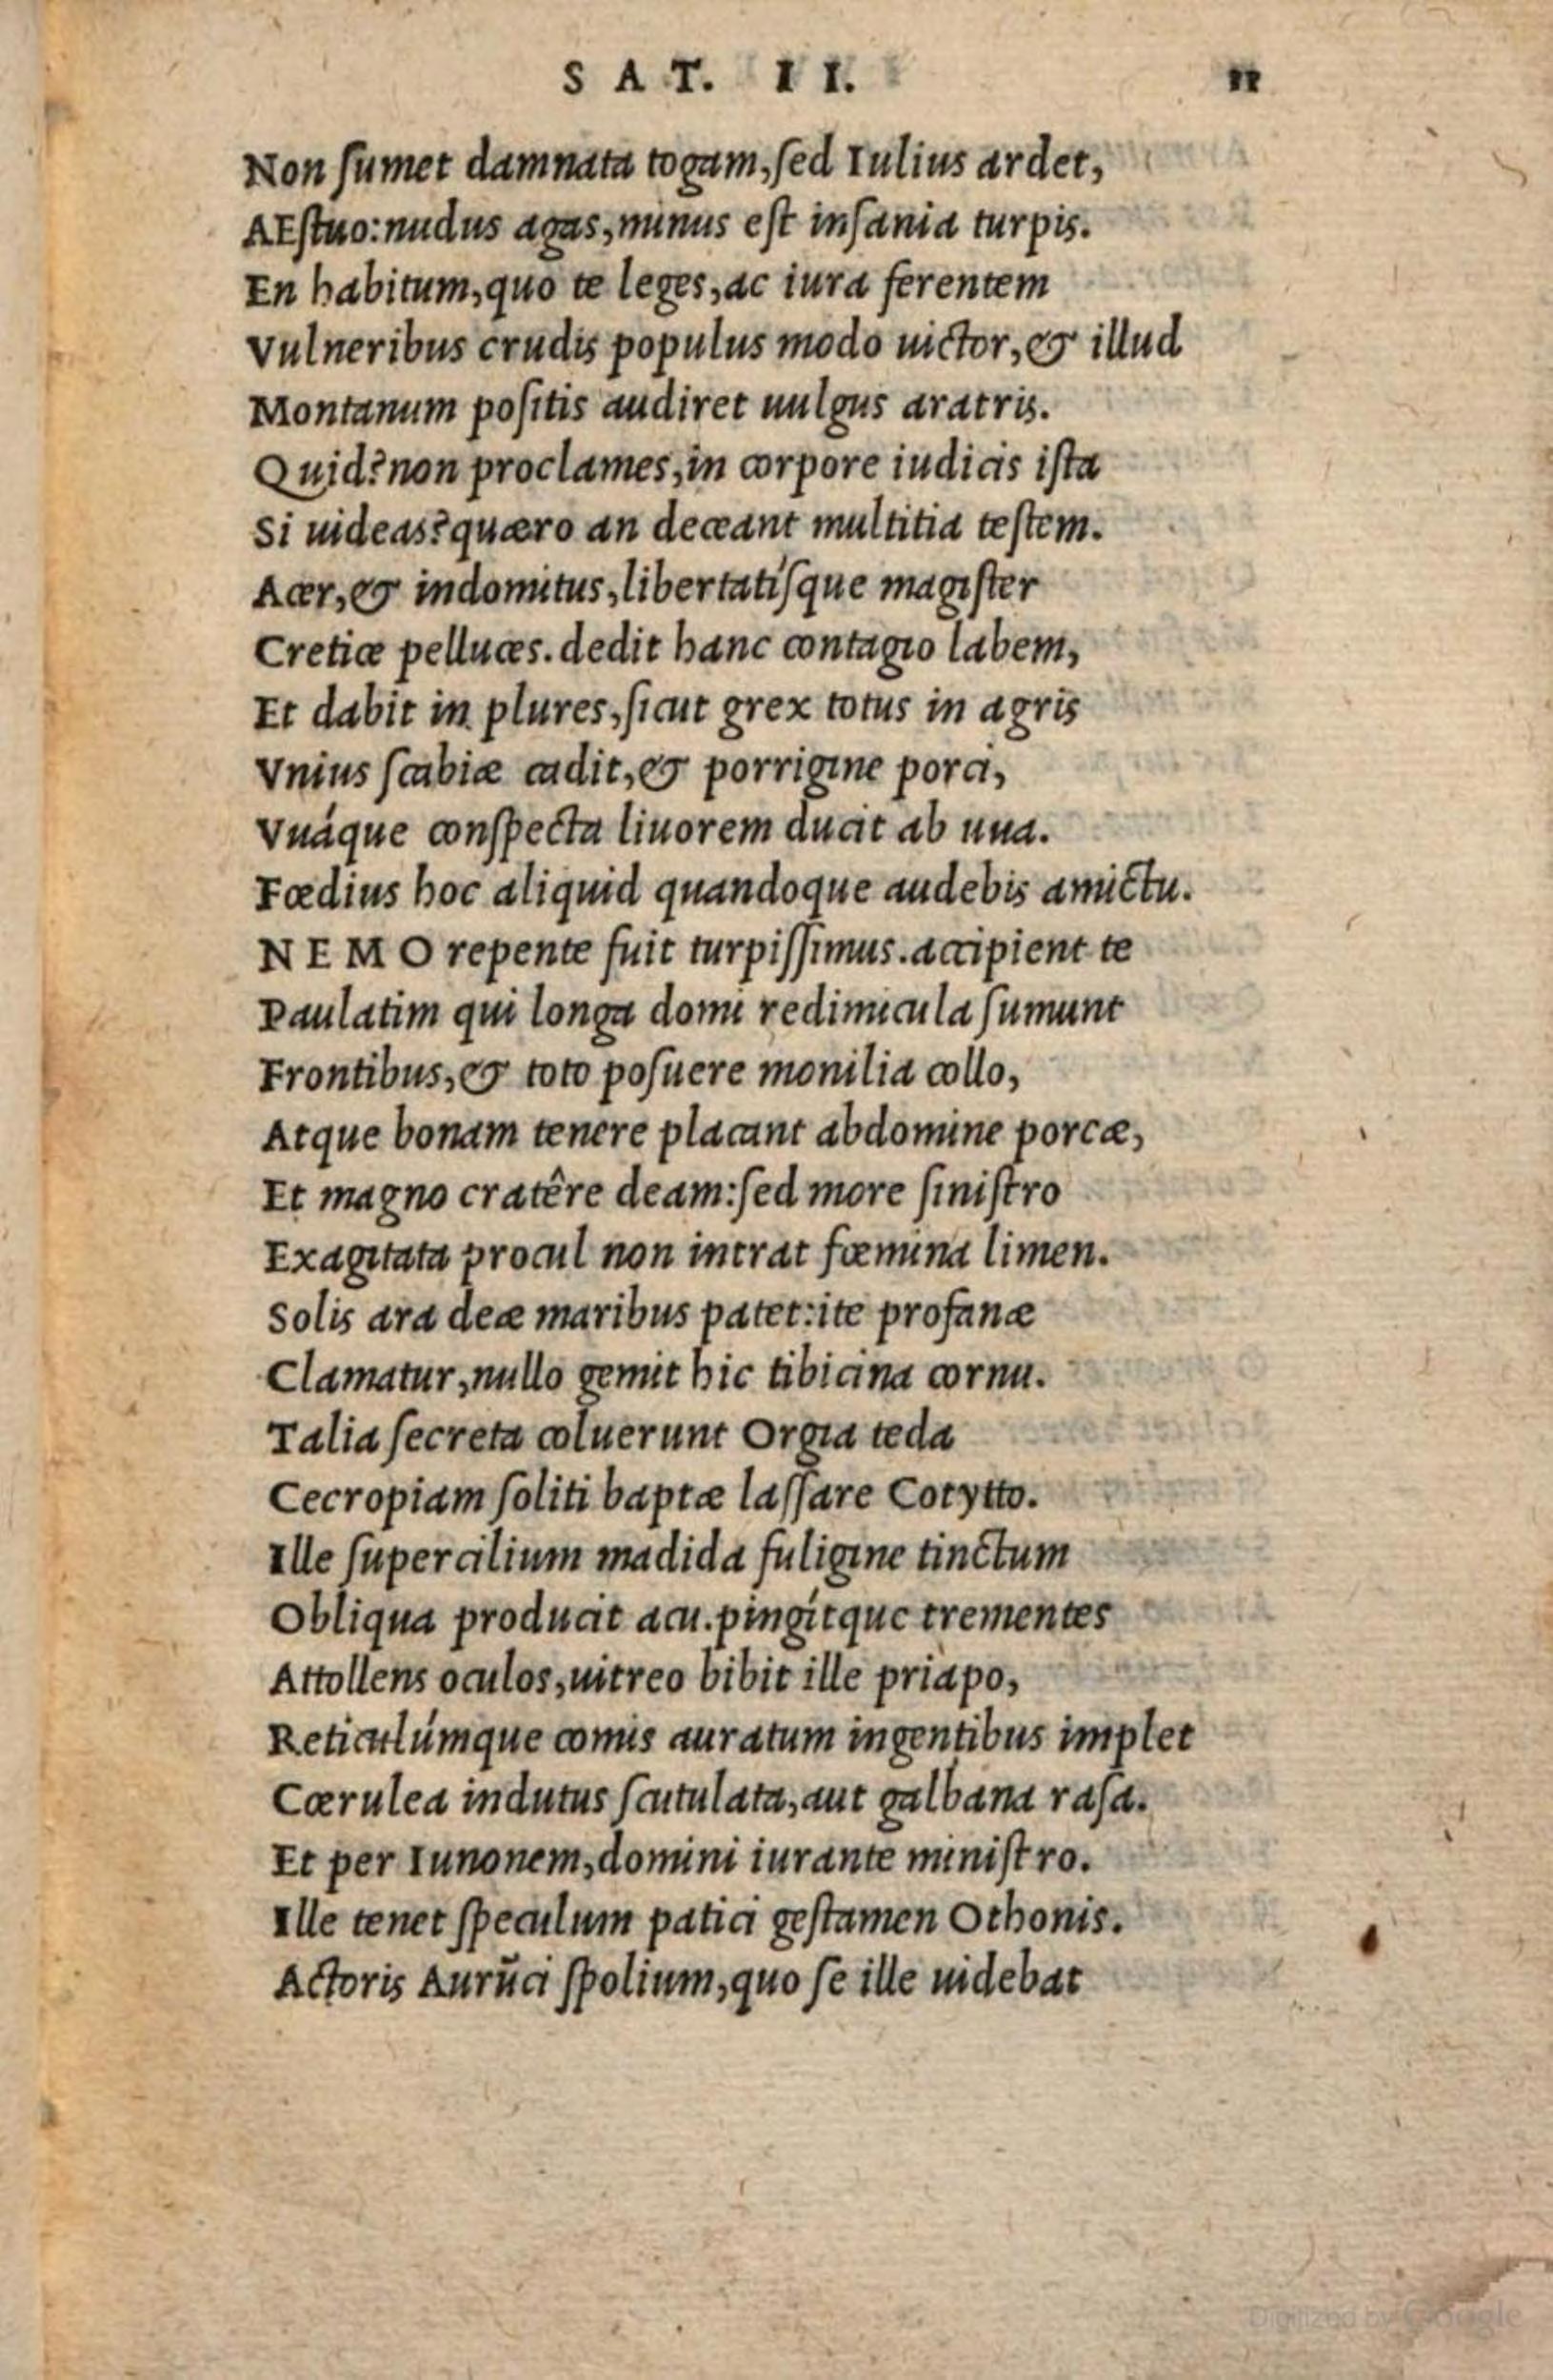 SAT. II. 11
Non ſumet damnata togam,ſed Iulius ardet,
AEſtuo:nudus agas,minus eſt inſania turpis.
En habitum,quo te leges,ac iura ferentem
Vulneribus crudis populus modo uictor,& illud
Montanum poſitis audiret uulgus aratris.
Quid?non proclames,in corpore iudicis iſta
Si uideas?quæro an deceant multitia teſtem.
Acer,& indomitus,libertatíſque magiſter
Cretice pelluces.dedit hanc contagio labem,
Et dabit in plures,ſicut grex totus in agris
Vnius ſcabie cadit,& porrigine porci,
Vuáque conſpecta liuorem ducit ab uua.
Fœdius hoc aliquid quandoque audebis amictu.
NEMO repente fuit turpiſſimus.accipient te
Paulatim qui longa domi redimicula ſumunt
Frontibus,& toto poſuere monilia collo,
Atque bonam tenere placant abdomine porcæ,
Et magno cratêre deam:ſed more ſiniſtro
Exagitata procul non intrat fœmina limen.
Solis ara deæ maribus patet:ite profanæ
Clamatur,nullo gemit hic tibicina cornu.
Talia ſecreta coluerunt Orgia teda
Cecropiam ſoliti baptæ laſſare Cotytto.
Ille ſupercilium madida fuligine tinctum
Obliqua producit acu.pingítque trementes
Attollens oculos,uitreo bibit ille priapo,
Reticulúmque comis auratum ingentibus implet
Cœrulea indutus ſcutulata,aut galbana raſa.
Et per Iunonem,domini iurante miniſtro.
Ille tenet ſpeculum patici geſtamen Othonis.
Actoris Aurũci ſpolium,quo ſe ille uidebat
Digitized by Google